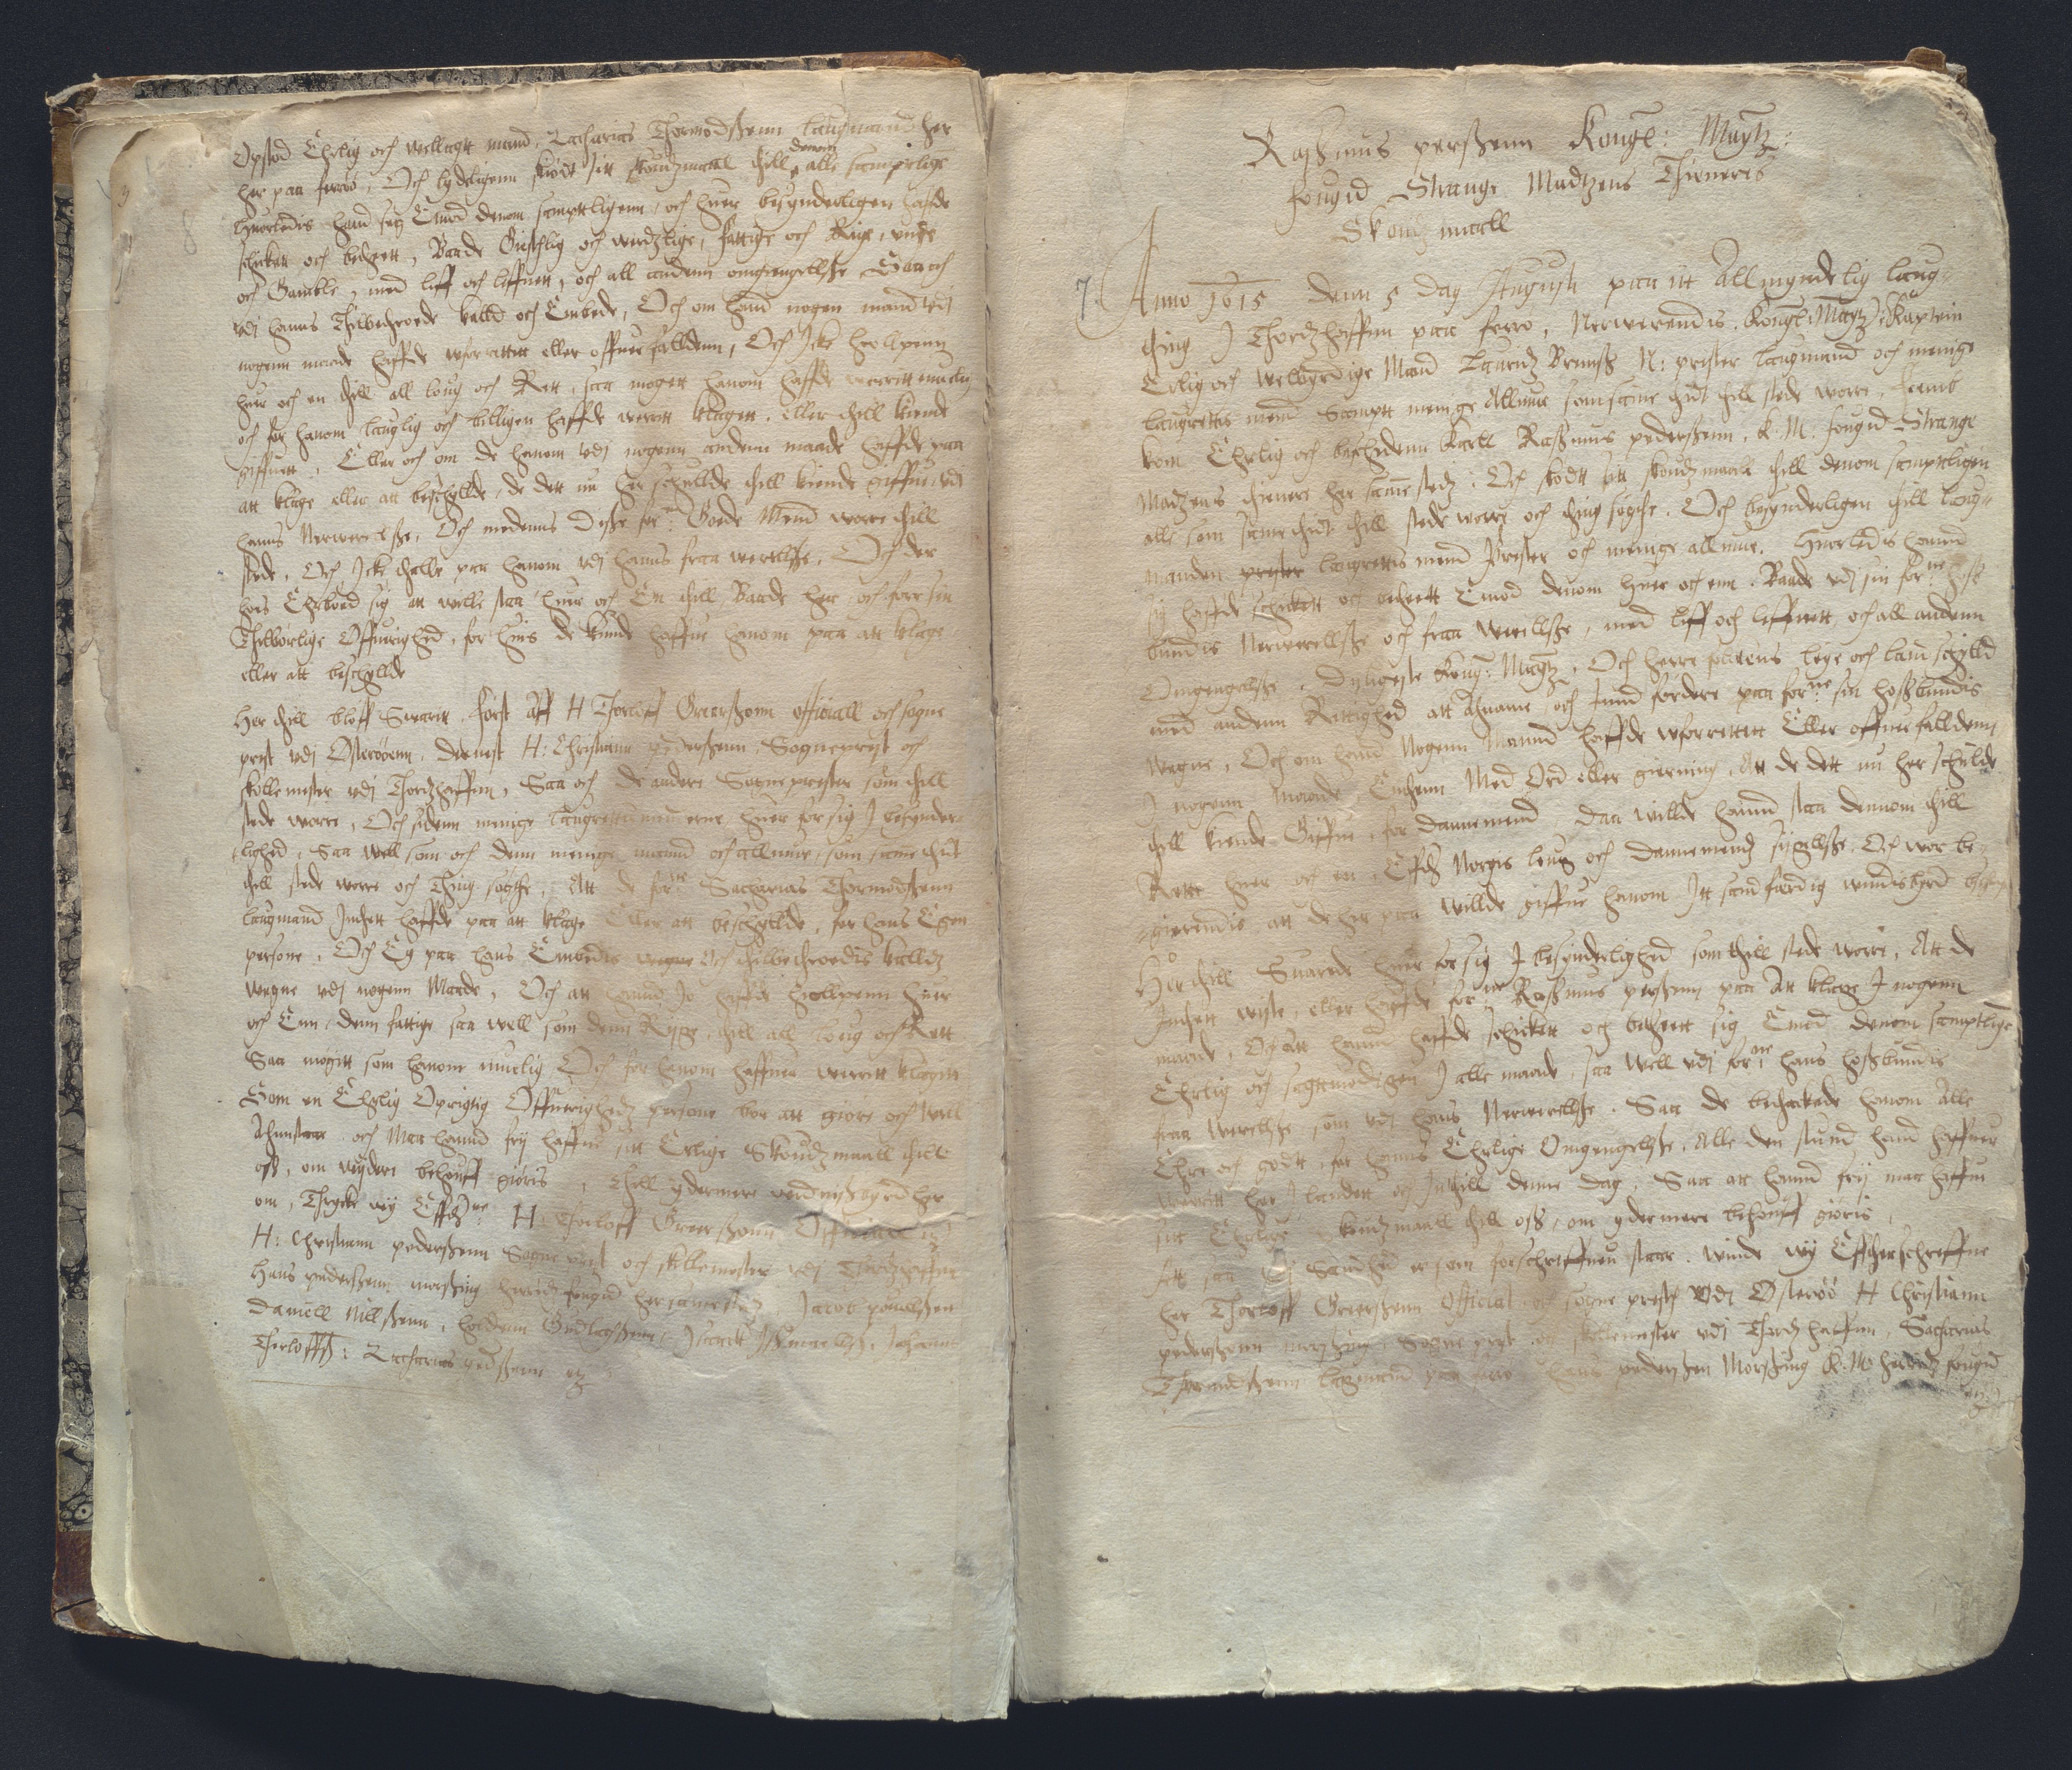 Opstod Ehrlig och wellagtt mand, Zacharias Thormodßenn laugmand her
her paa ferrø, Och lydeligenn skiødt sitt skoudzmaall thill denom alle samptlige
huorledis hand sig Emod denom samptligenn, och huer besynderligen haffde
schickett och bedzett, Baade Giestlig och werdzlige, fattige och Rige, unge
och Gamble, med liff och liffnett, och all anden omgiengellße Saa och
udj hanns Thilbethroede kalld och Embede, Och om hand nogen mand udj
nogenn maade haffde uforrettett eller offuerfalldenn, Och Icke hiollpenn
huer och en thill all loug och Rett, saa mogett hanom haffde werritt muelig
och for hanom lauglig och billigen haffde werritt klagett. eller thill kiende
giffuett, Eller och om de hanom udj nogenn andenn maade haffde paa
att klage eller att beschyllde, de dett nu her schullde thill kiende giffue, udj
hanns Nerwerelße, Och medenns Diße forne Goede Mend worre thill
stede, Och Icke thalle paa hanom udj hanns fraa werellße, Och der
hoes Ehrbød sig att wille staa huer och En thill Baade her och for sin
Thilbørlige Øffuerighed, for huis de kunde haffue hanom paa att klage
eller att beschyllde
Her thill bleff Swaritt, først aff H Thorloff Greerßonn official och sogne
prest udj Østerøenn, dernest H: Christiann Pederßenn, Sogneprest och
skollemester udj Thorßhaffnn, Saa och de andere Sogneprester som thill
stede worre, Och sidenn menige laugrettismennerne huer for sig I besynder-
lighed, saa well som och denn menige mannd och allmue, som samme thidt
thill stede werre och Thing søgthe, Att de forne Sacharias Thormodßenn
laugmand Inthett haffde paa att klage Eller att beschyllde, for hans Egen
persone, Och Ey paa hans Embedis wegne Och thilbethroedis kalldz
wegne udj nogenn Maade, Och att hannd Jo haffde hiollpenn huer
och Enn, denn fattige saa well som denn Ryge, thill all loug och Rett
Saa mogitt som hanom muelig Och for hanom haffuer werritt klagett
Som en Ehrlig Oprigtig Øffuerighedz persone bør att giøre och well
Ahnstaar och Maa hannd frij haffue sitt Erlige Skoudzmaall thill
oß, om wydere behouff giøris, Thill ydermere werdnißbyrd her
om, Thrycke wij Effthne: H: Thorloff Greerßonn, Official etz
H: Christiann pederßenn Sogne prest och skollemester udj Thorßhaffnn
Hans pederßenn morßing herridzfougid her sammestedz, Jacob pouelßen
Daniell Nillßenn, Haldenn Gudlagßenn, Isaack Ißmaellß, Johannes
Thorloffß: Zacharias pedßenn etz

Raßmus perßenn Kongl: Maytz:
fougid Strange Madtzens Thieneris
Skoudzmaall
7. Anno 1615 denn 5 dag Augusti paa itt Allmyndelig laug-
thing I Thordzhaffnn paa ferrø, Nerwerendis, Kongl: Maytz: Kaptein
Erlig och welbyrdige Mand Lauridz Brunß N: prester laugmand och menige
laugrettis mend Samptt menige Allmue som same thidt thill stede worre, fremb
kom Ehrlig och beschedenn Karll Raßmus pederßenn, K. M. fougid Strange
Madtzens thienere her samestedz: Och skødtt sitt skoudzmaall thill denom samptligen
alle som same thidt thill stede werre och thing søgthe. Och besynderligen thill laug-
manden laugrettis mend Prester och menige allmue. Huorledis hannd
sig haffde schickett och bedzett Emod denom huer och enn. Baade udj sin forne hoß
bundis Nerwerellße och fraa werellße, med liff och liffnett, och all andenn
Omgengellße. Dyligeste Kong: Maytz, Och herre skatens leye och land schylld
med andenn Rettighed att Ahname och Innd fordere paa forne sin hoßbundis
wegne, Och om hand Nogenn Mannd haffde uforrettett Eller offuerfalldenn
I nogenn Maade Enthenn Med Ord eller gierning, Att de dett nu her schulde
thill kiende Giffue, for dannemend, Daa willde hannd staa dennom thill
Rette huer och en, Effth Norgis loug och dannemendz sigellße. Och wor be-
gierendis att de her paa willde giffue hanom Itt sandfærdig windisbyrd
Her thill Suarede huer for sig I besynderlighed som thill stede ware, Att de
Inthett wiste, eller haffde forne Raßmus perßenn paa Att klage I nogenn
maade, Och att hannd haffde schickett och bedzett sig Emod denom samptlige
Ehrlig och sagttmodigen I alle maade, saa well udj forne hans hoßbundis
fraa werellße, som udj hans Nerwerellße. Saa de bethackede hanom Alle
Ehre och godtt, for hanns Ehrlige Omgengellße, Alle den stund hand haffuer
werritt her I landett och Indthill denne dag, Saa att hannd frij maa haffue
sitt Ehrlige skoudzmaall thill oß, om ydermere behouff giøris,
Att saa I Sandhed er som forschreffuen staar. Winde wij Effterschreffne
her Thorloff Greerßenn Official och sogne prest Udj Østerøe H Christiann
pederßenn morßing, Sogne prest och skollemester udj Thordzhaffnn, Sacharias
Thormodßenn laugmand paa ferrø hans pederßen Morßing K. M. herridz fougid
etz